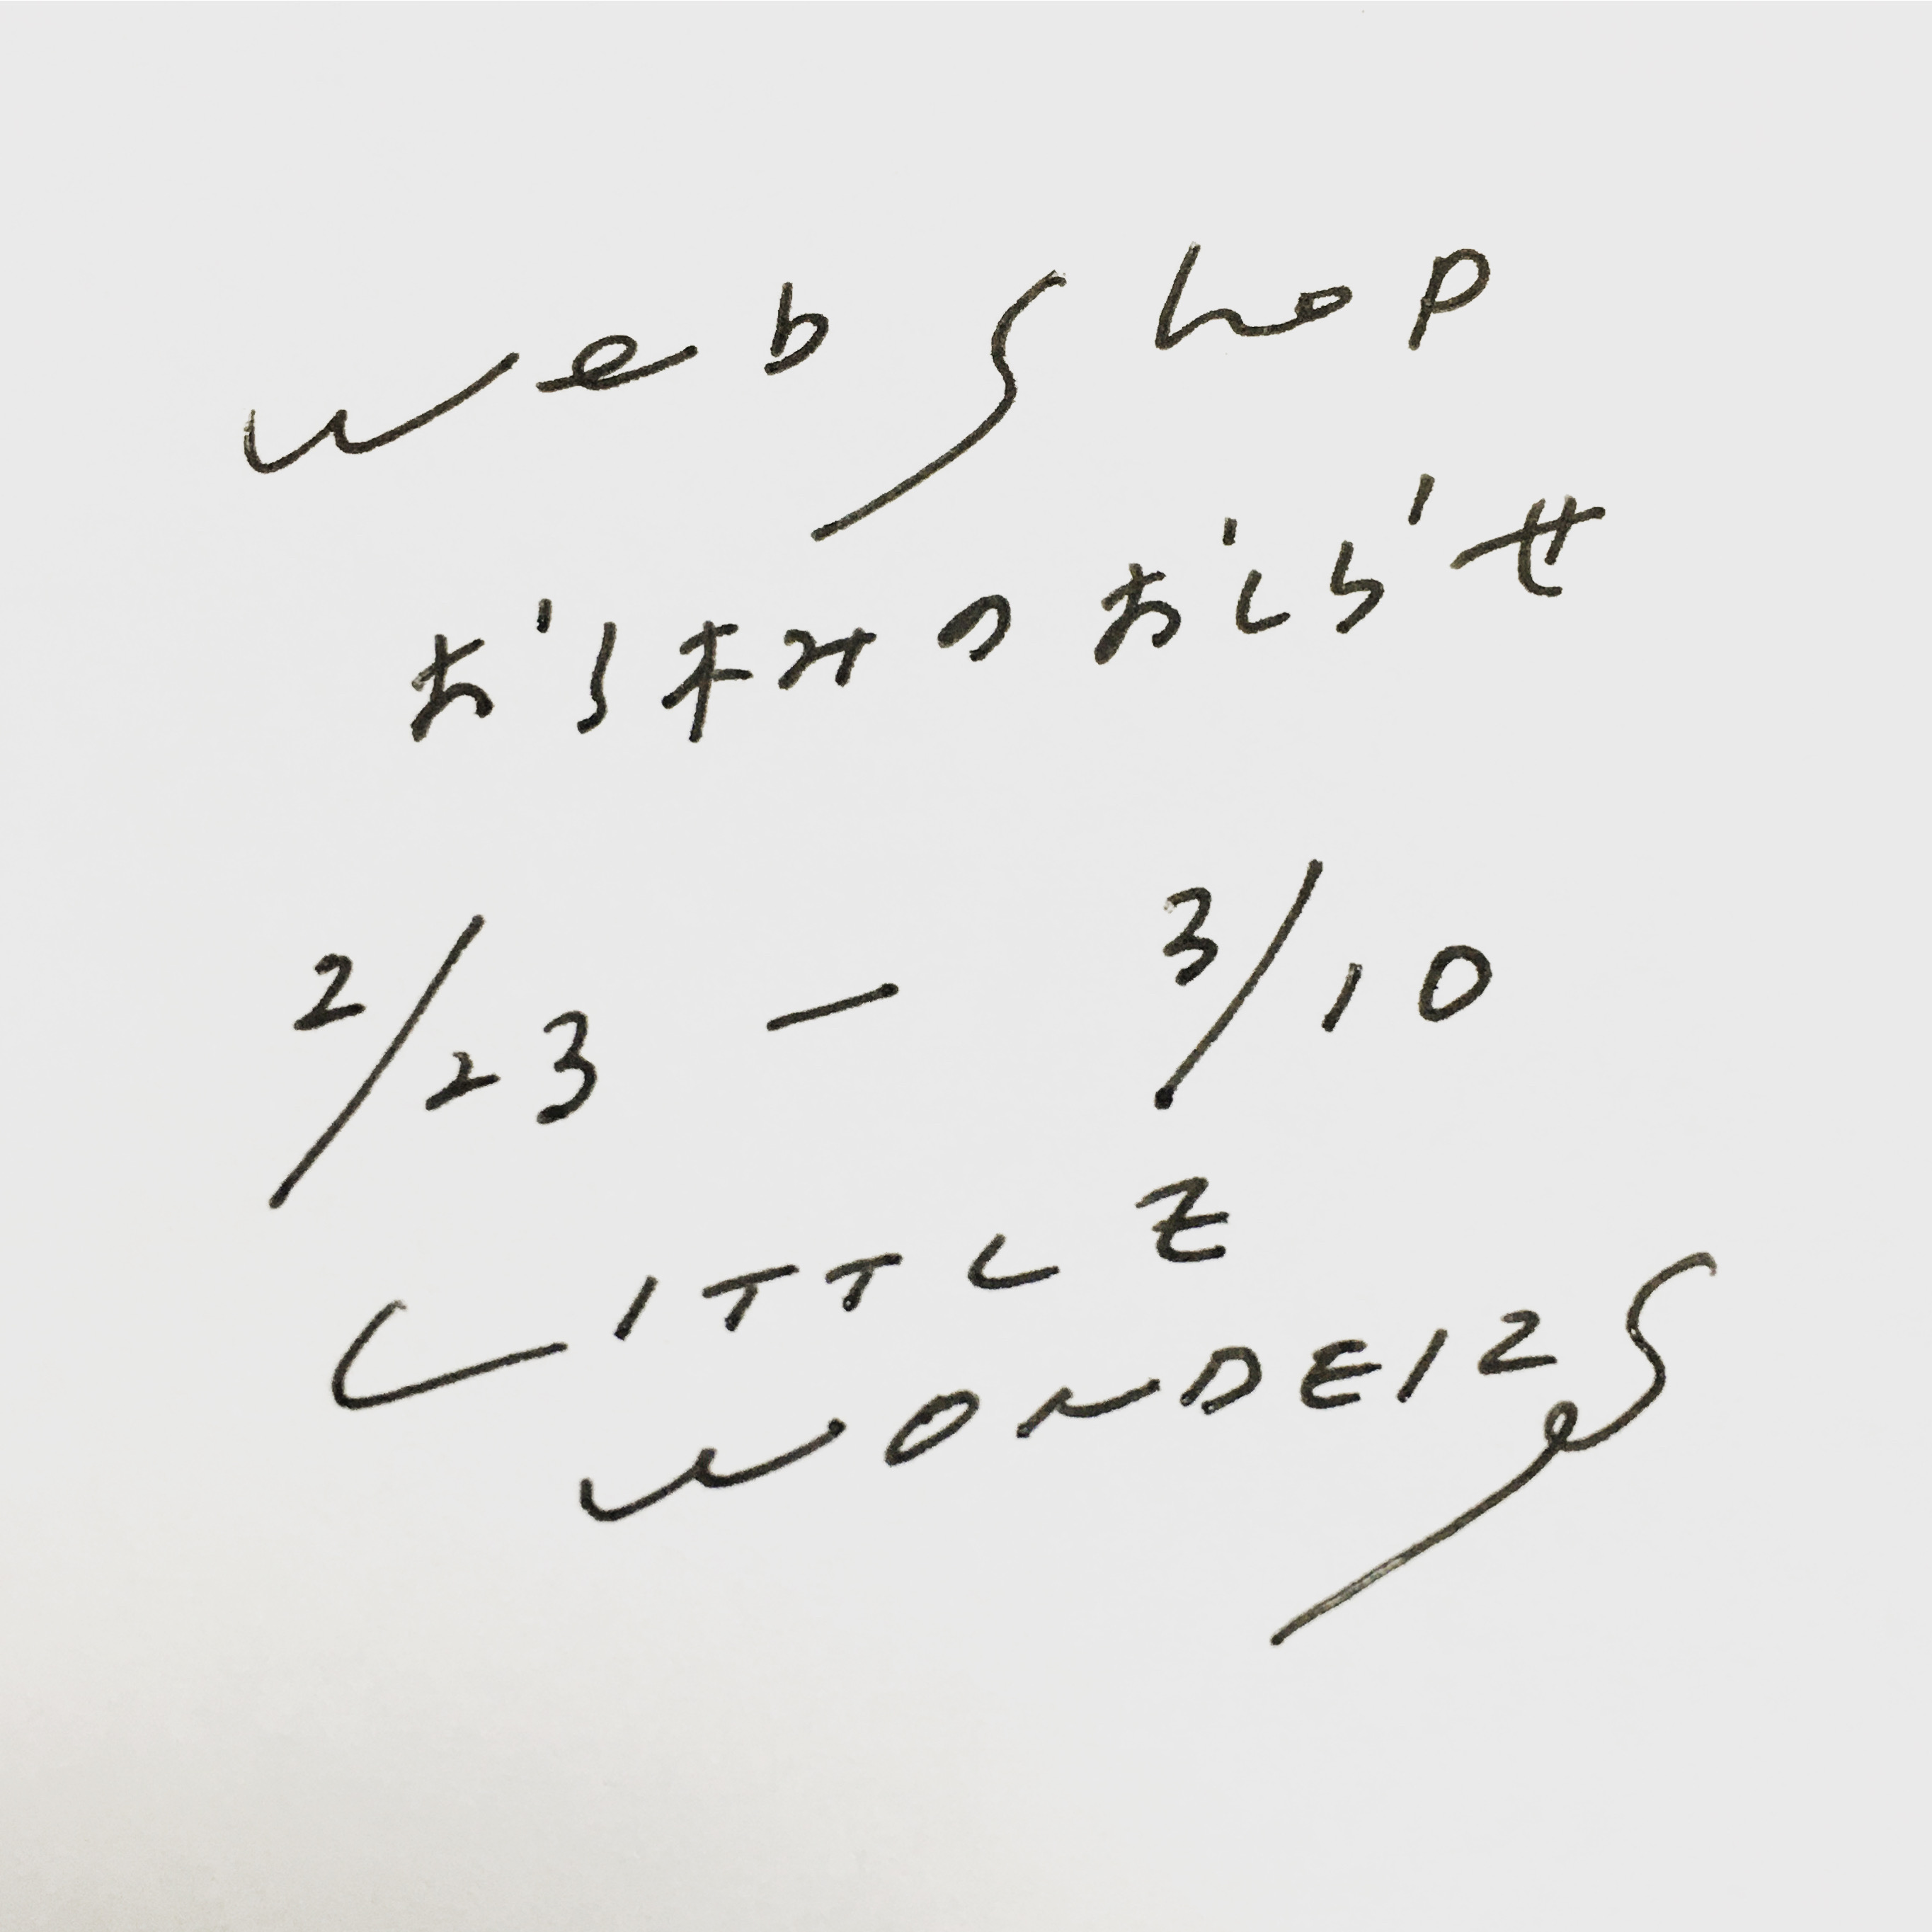 web shop
お休みのおしらせ
2/23 - 3/10
LITTLE
WONDERS